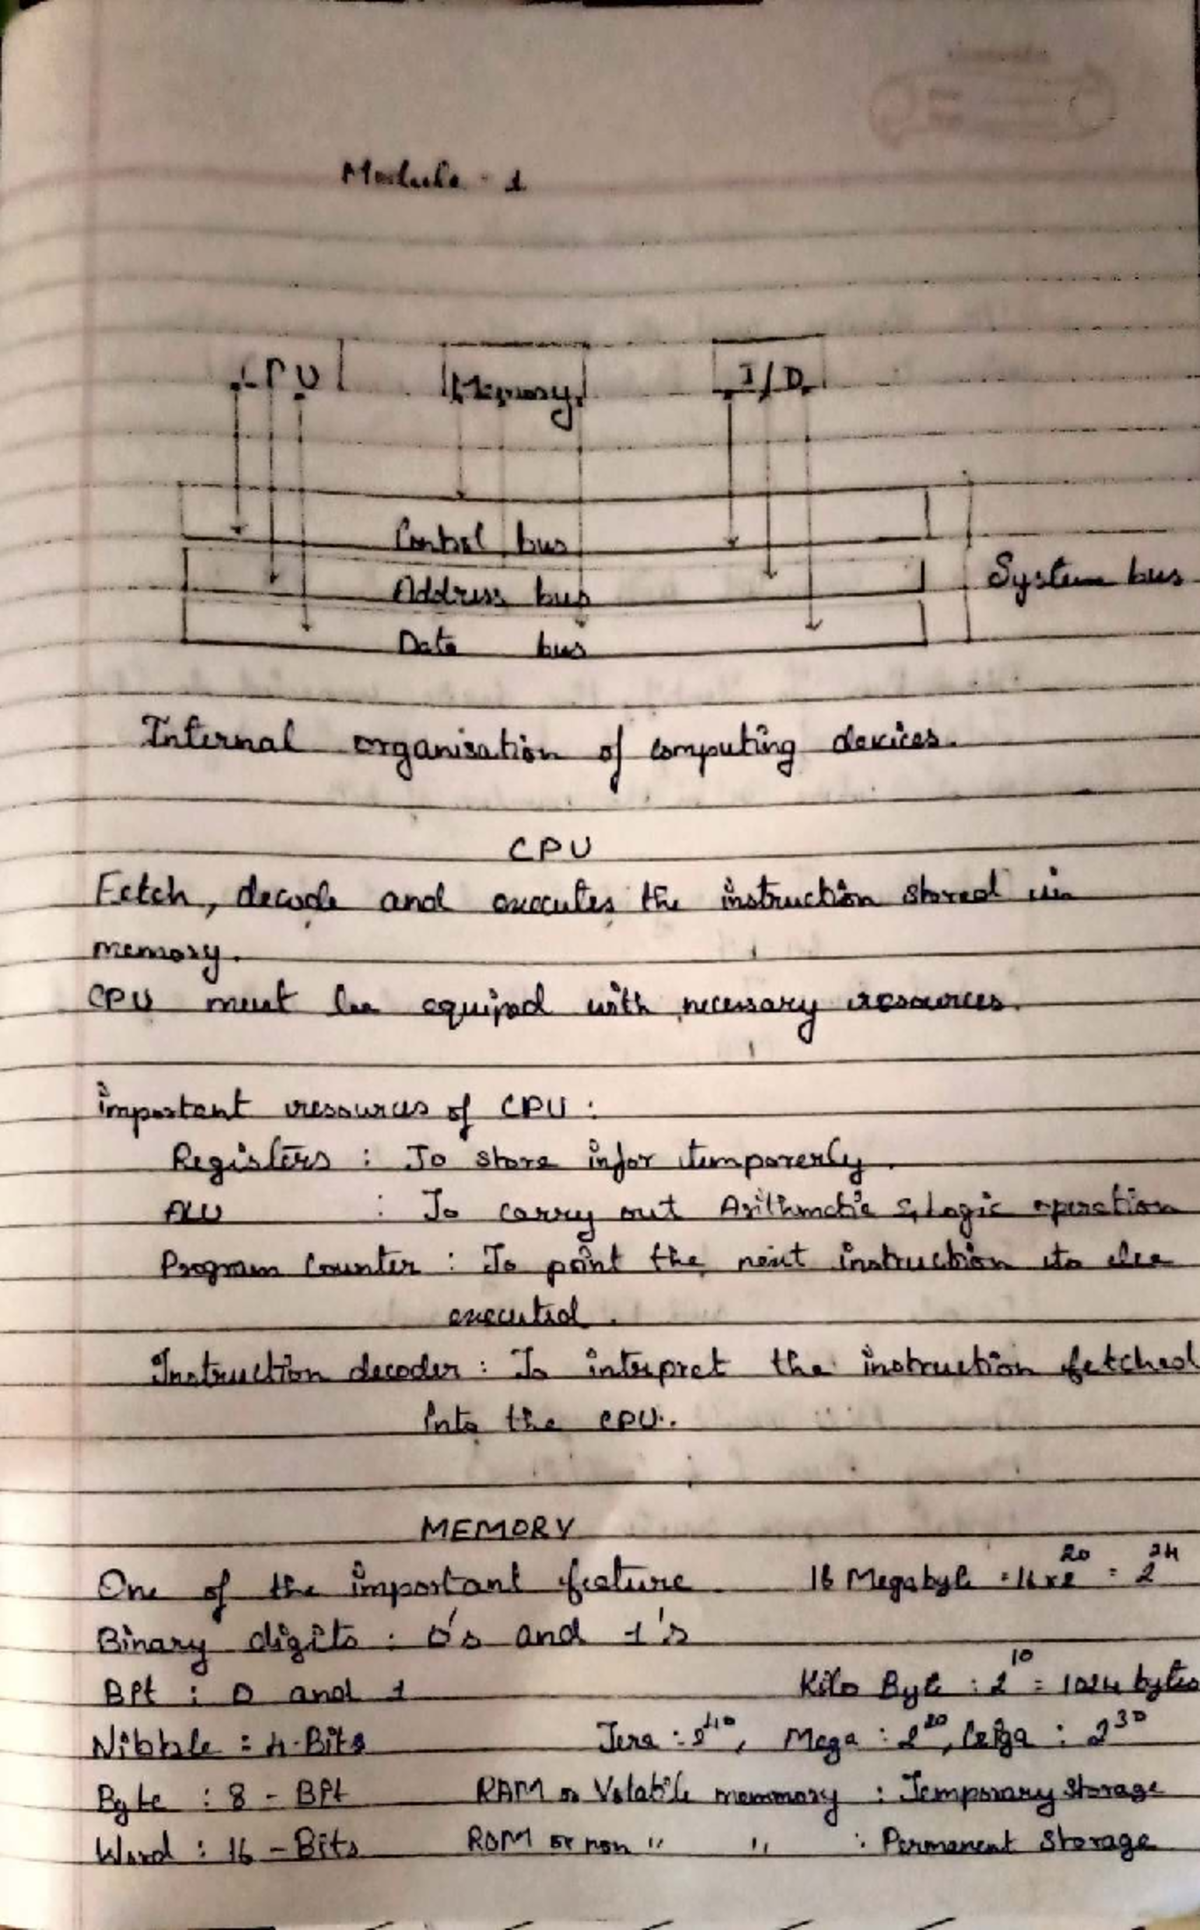 Module - 1
CPU Memory I/D
Control bus
Address bus System bus
Data bus
Internal organisation of computing devices.
CPU
Fetch, decode and executes the instruction stored in
memory.
CPU must be equiped with necessary resources.
important resources of CPU :
Registers : To store infor temporerly.
ALU : To carry out Arithmetic & Logic operation
Program Counter : To point the next instruction to be
executed.
Instruction decoder : To interpret the instruction fetched
into the CPU.
MEMORY
One of the important feature 16 Megabyte = 16 x 2²⁰ = 2²⁴
Binary digits : 0's and 1's
Bit : 0 and 1 Kilo Byte : 2¹⁰ = 1024 bytes
Nibble = 4-Bits Tera : 2⁴⁰, Mega : 2²⁰, Geiga : 2³⁰
Byte : 8 - Bit RAM or Volatile memmory : Temporary Storage
Word : 16 - Bits ROM or non " " : Permanent Storage